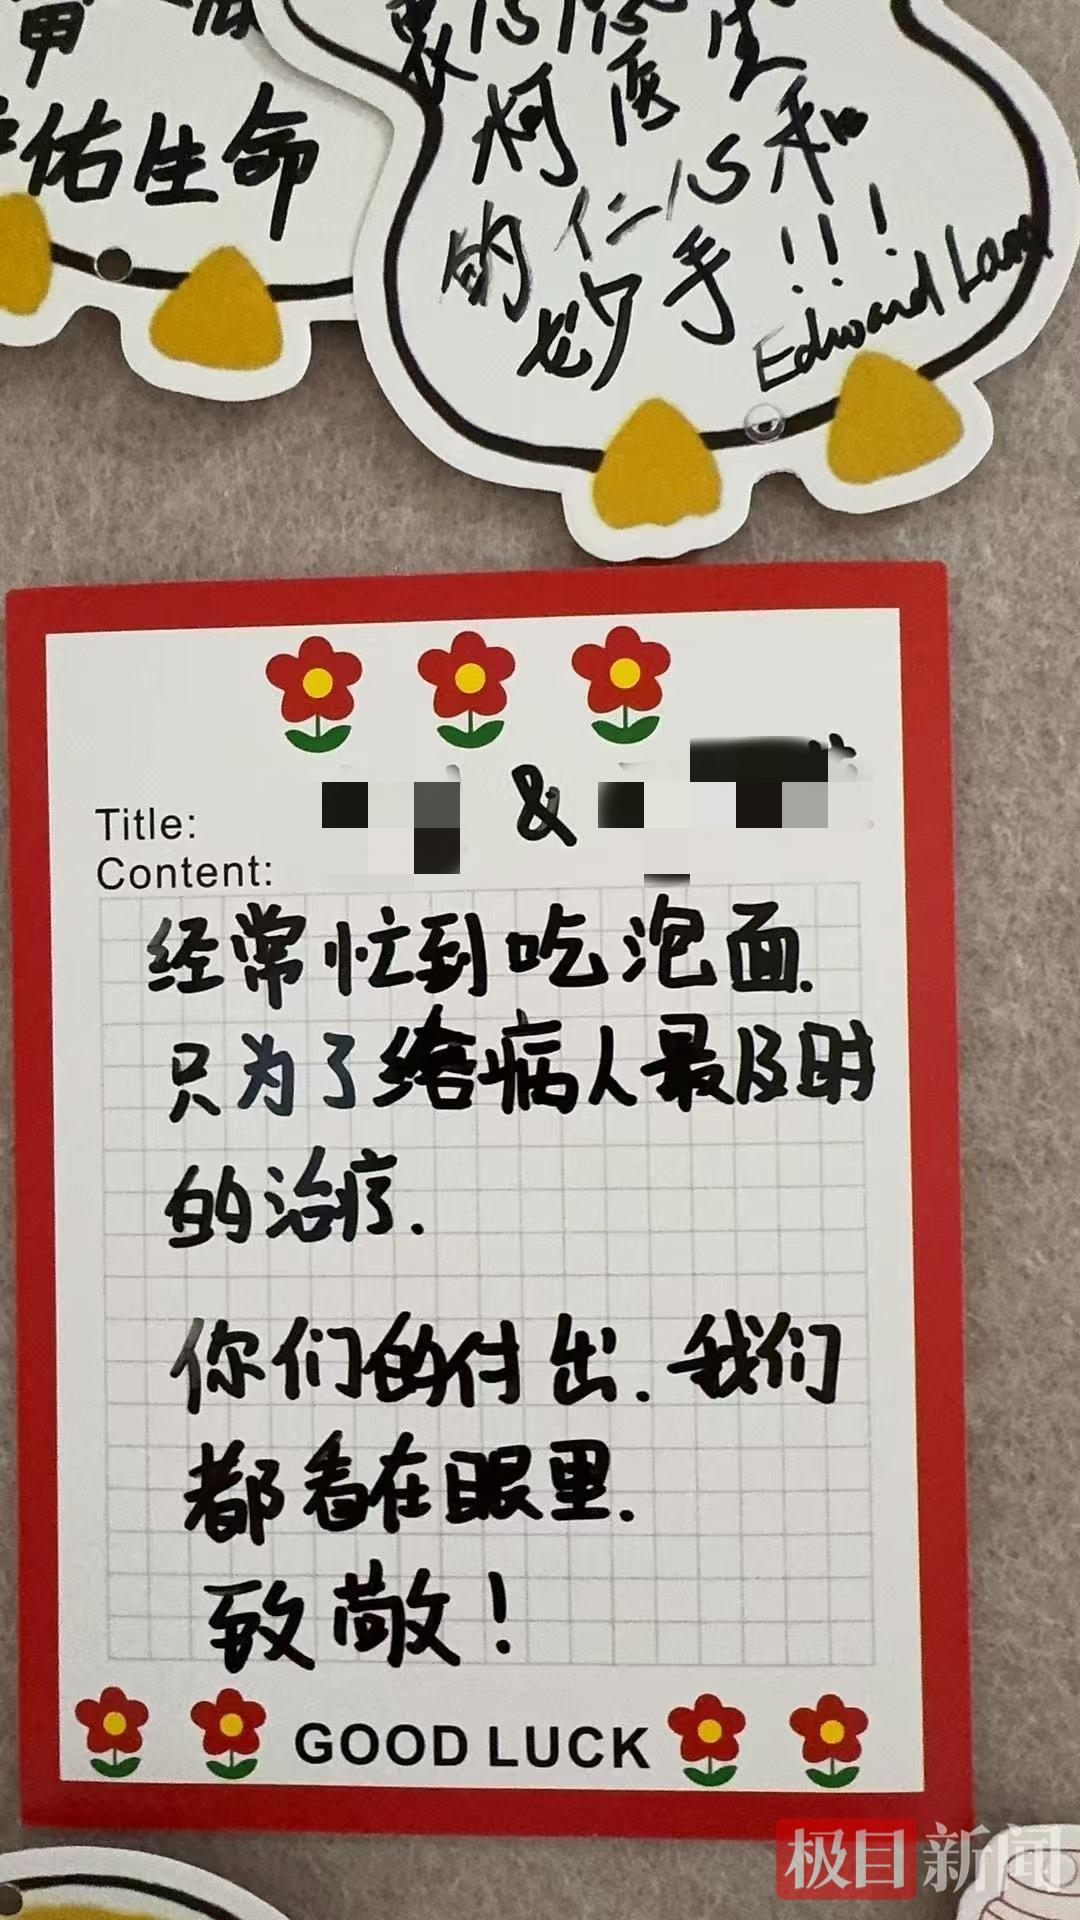 佑生命
医生
柯医生和
的仁心和
妙手!!!
Edward Lam
&
Title:
Content:
经常忙到吃泡面.
只为了给病人最及时
的治疗.
你们的付出.我们
都看在眼里.
致敬!
GOOD LUCK
极目新闻